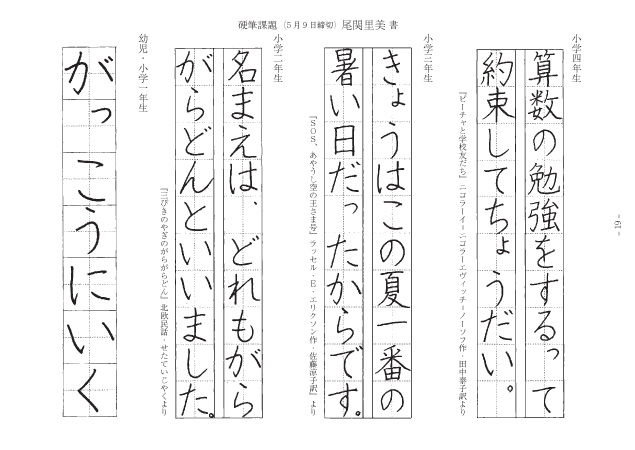 硬筆課題（５月９日締切）尾関里美 書
小学四年生
算数の勉強をするって
約束してちょうだい。
『ビーチャと学校友だち』ニコラーイ・ニコラーエヴィッチ・ノーソフ作・田中泰子訳より
小学三年生
きょうはこの夏一番の
暑い日だったからです。
『ＳＯＳ、あやうし空の王さま号』ラッセル・Ｅ・エリクソン作・佐藤涼子訳』より
小学二年生
名まえは、どれもがら
がらどんといいました。
『三びきのやぎのがらがらどん』北欧民話・せたていじやくより
幼児・小学一年生
がっこうにいく
- 19 -